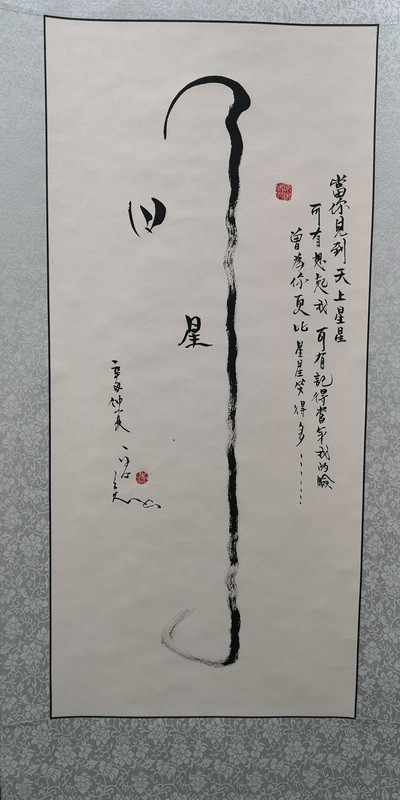 當你見到天上星星
可有想起我 可有記得當年我的臉
曾為你更比星星笑得多……
星
辛丑仲夏